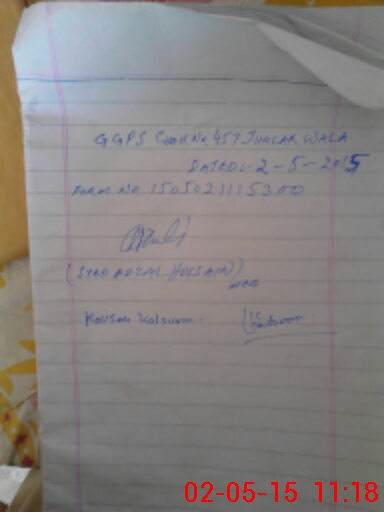 GGPS Chak No. 457 JHALAR WALA
DATED:- 2-5-2015
FORM NO. 1505021115300
(SYED AFZAL HUSSAIN)
Kousar Kalsoom.
02-05-15 11:18